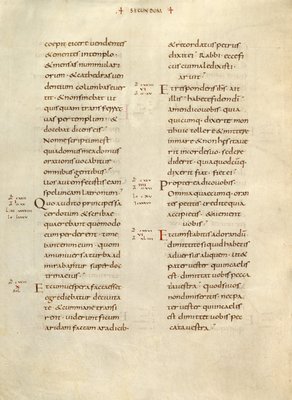 SECUNDUM
coepit eicere uendentes
& ementes in templo
& mensas nummulari
orum · & cathedras uen
dentium columbas euer
tit · & non sinebat ut
quisquam transferret
uas per templum · &
docebat dicens eis
Nonne scriptum est
quia domus mea domus
orationis uocabitur
omnibus gentibus
uos autem fecistis eam
speluncam latronum
Quo audito principes sa
cerdotum & scribae
quaerebant quomodo
eum perderent · time
bant enim eum · quoniam
uniuersa turba ad
mirabatur super doc
trina eius
Et cum uespera facta esset
egrediebatur de ciuita
te · & cum mane transi
rent · uiderunt ficum
aridam factam a radicib
& recordatus petrus
dixit ei rabbi ecce fi
cus cui maledixisti
aruit
Et respondens ihs ait
illis habete fidem di
amen dico uobis quia
quicumque dixerit mon
ti huic tollere & mittere
in mare & non haesitaue
rit in corde suo sed cre
diderit · quia quodcumque
dixerit fiat · fiet ei
Propterea dico uobis
Omnia quaecumque oran
tes petitis credite quia
accipietis · & uenient
uobis
Et cum stabitis ad orandum
dimittite si quid habetis
aduersus aliquem · ut &
pater uester qui in caelis
est dimittat uobis pecca
ta uestra · quod si uos
non dimiseritis nec pa
ter uester qui in caelis
est dimittet uobis pec
cata uestra